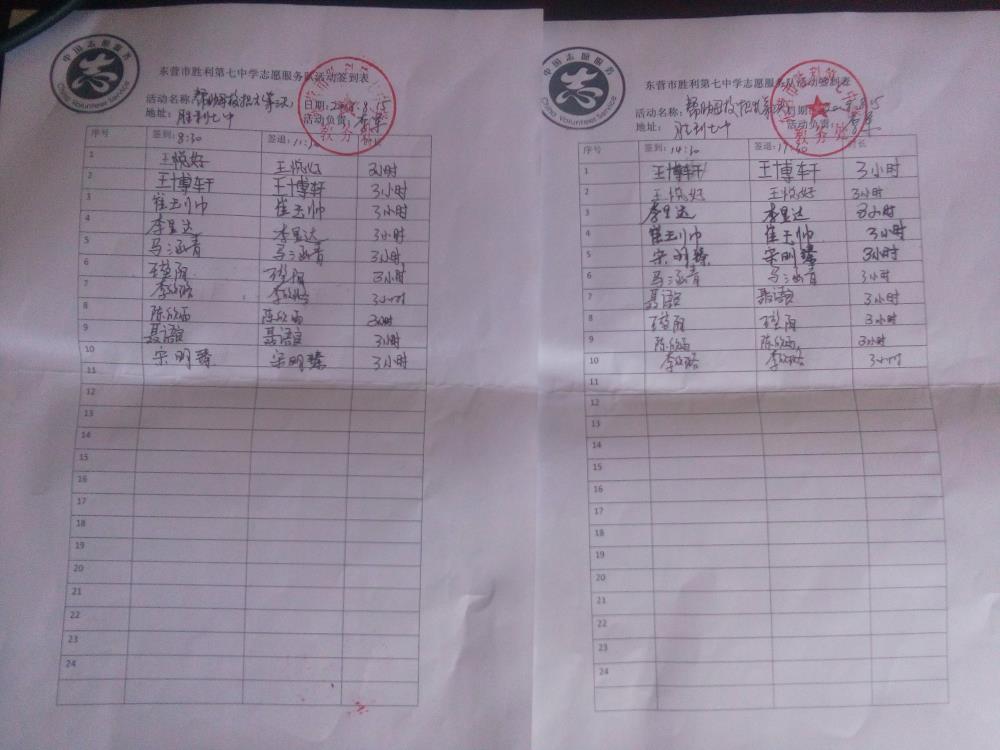 中国志愿服务
China Volunteer Service
东营市胜利第七中学志愿服务队活动签到表
活动名称: 帮助母校招新
日期: 8.15
地址: 胜利七中
活动负责:
教务处
序号 签到: 8:30 签退: 11:30 时长
1 王悦好 王悦好 3小时
2 王博轩 王博轩 3小时
3 崔玉帅 崔玉帅 3小时
4 李星达 李星达 3小时
5 马涵青 马涵青 3小时
6
7 3小时
8 陈欣雨 陈欣雨 3小时
9 聂语 聂语 3小时
10 宋明臻 宋明臻 3小时
11
12
13
14
15
16
17
18
19
20
21
22
23
24
中国志愿服务
China Volunteer Service
东营市胜利第七中学志愿服务队活动签到表
活动名称: 帮助母校招新
日期: 8.15
地址: 胜利七中
活动负责:
教务处
序号 签到: 14:30 签退: 17:30 时长
1 王博轩 王博轩 3小时
2 王悦好 王悦好 3小时
3 李星达 李星达 3小时
4 崔玉帅 崔玉帅 3小时
5 宋明臻 宋明臻 3小时
6 马涵青 马涵青 3小时
7 聂语 聂语 3小时
8 3小时
9 陈欣雨 陈欣雨 3小时
10 3小时
11
12
13
14
15
16
17
18
19
20
21
22
23
24